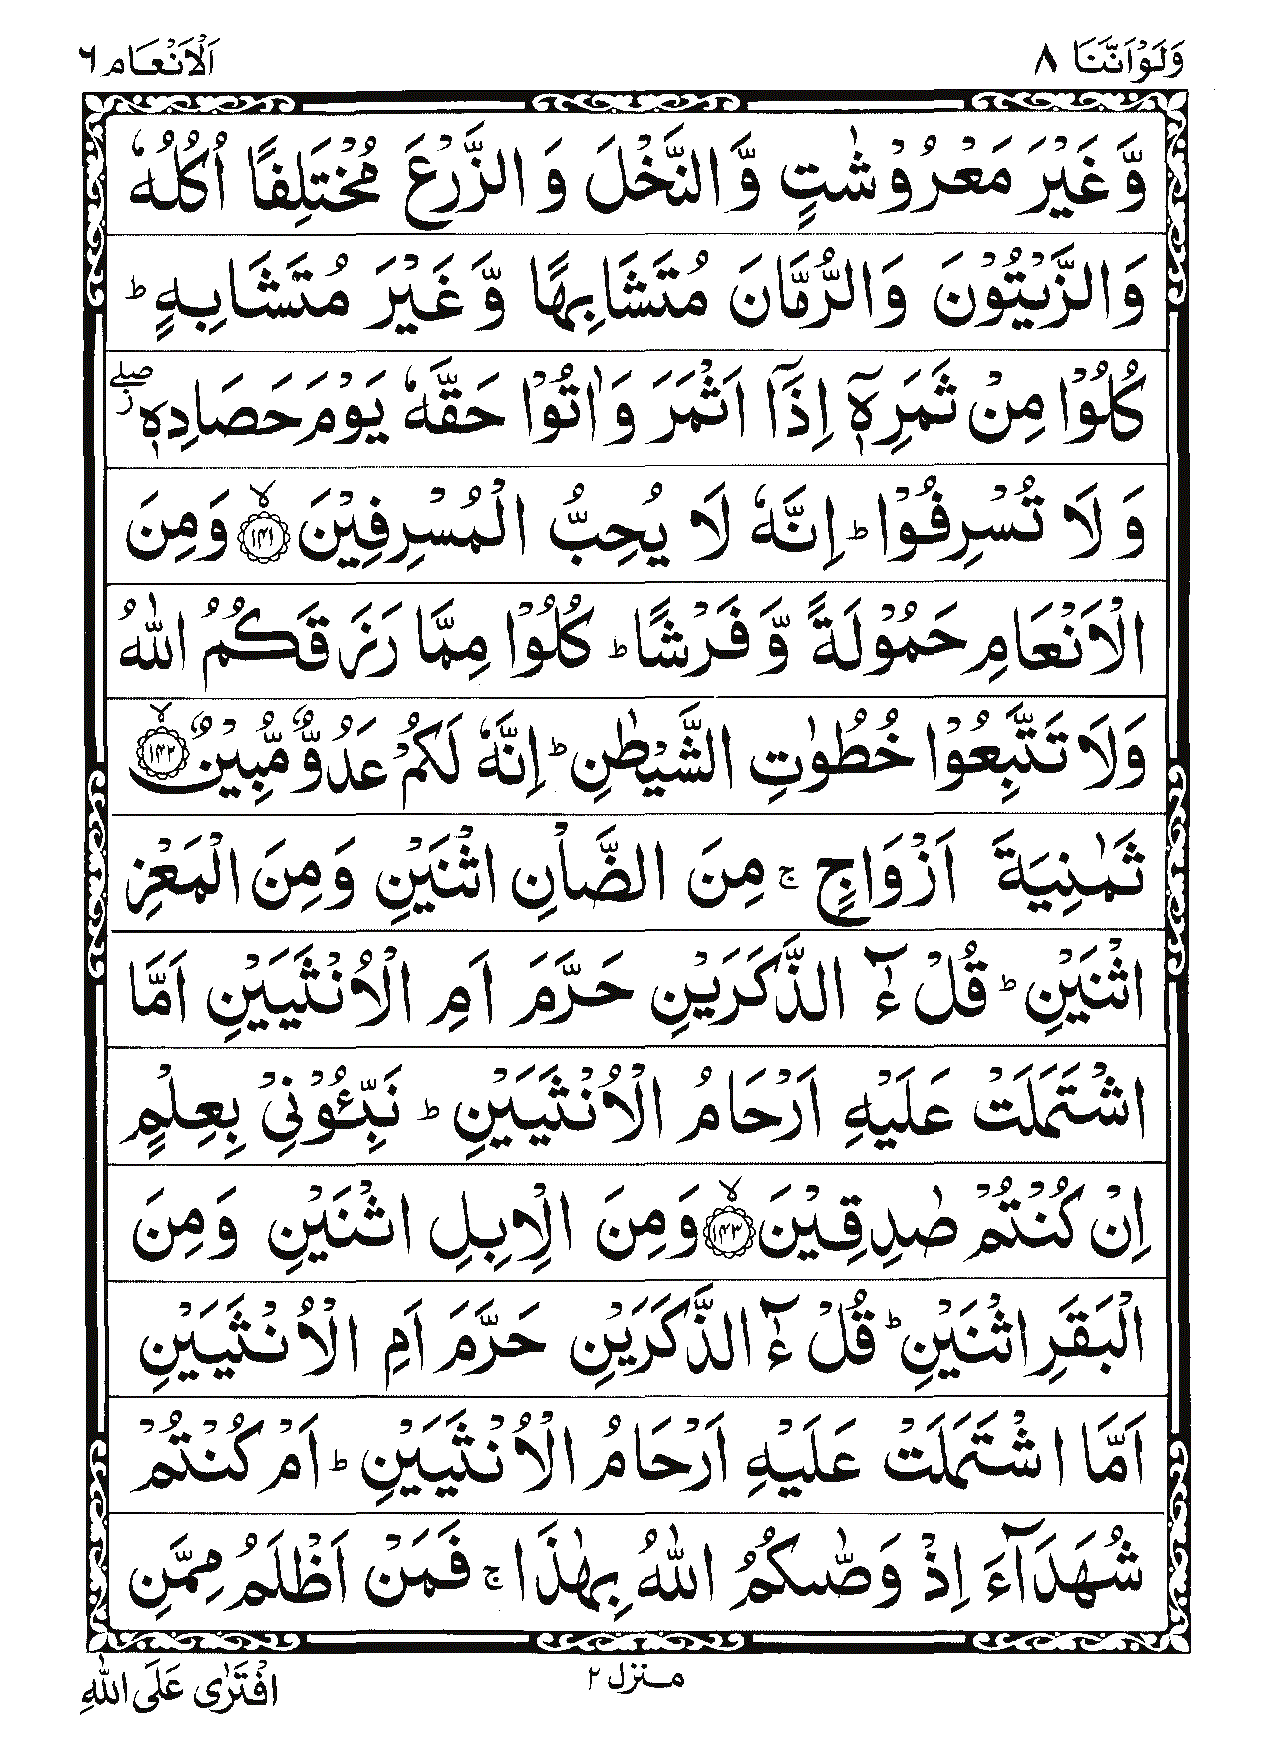 وَلَوْاَنَّنَا ٨
اَلْاَنْعَام ٦
وَّغَيْرَ مَعْرُوْشٰتٍ وَّالنَّخْلَ وَالزَّرْعَ مُخْتَلِفًا اُكُلُهٗ
وَالزَّيْتُوْنَ وَالرُّمَّانَ مُتَشَابِهًا وَّغَيْرَ مُتَشَابِهٍ ؕ
كُلُوْا مِنْ ثَمَرِهٖۤ اِذَاۤ اَثْمَرَ وَاٰتُوْا حَقَّهٗ يَوْمَ حَصَادِهٖ ۖز
وَلَا تُسْرِفُوْا ؕ اِنَّهٗ لَا يُحِبُّ الْمُسْرِفِيْنَ ۙ﴿۱۴۱﴾ وَمِنَ
الْاَنْعَامِ حَمُوْلَةً وَّفَرْشًا ؕ كُلُوْا مِمَّا رَزَقَكُمُ اللّٰهُ
وَلَا تَتَّبِعُوْا خُطُوٰتِ الشَّيْطٰنِ ؕ اِنَّهٗ لَكُمْ عَدُوٌّ مُّبِيْنٌ ۙ﴿۱۴۲﴾
ثَمٰنِيَةَ اَزْوَاجٍ ۚ مِنَ الضَّاْنِ اثْنَيْنِ وَمِنَ الْمَعْزِ
اثْنَيْنِ ؕ قُلْ ءٰٓالذَّكَرَيْنِ حَرَّمَ اَمِ الْاُنْثَيَيْنِ اَمَّا
اشْتَمَلَتْ عَلَيْهِ اَرْحَامُ الْاُنْثَيَيْنِ ؕ نَبِّـُٔوْنِيْ بِعِلْمٍ
اِنْ كُنْتُمْ صٰدِقِيْنَ ۙ﴿۱۴۳﴾ وَمِنَ الْاِبِلِ اثْنَيْنِ وَمِنَ
الْبَقَرِ اثْنَيْنِ ؕ قُلْ ءٰٓالذَّكَرَيْنِ حَرَّمَ اَمِ الْاُنْثَيَيْنِ
اَمَّا اشْتَمَلَتْ عَلَيْهِ اَرْحَامُ الْاُنْثَيَيْنِ ؕ اَمْ كُنْتُمْ
شُهَدَآءَ اِذْ وَصّٰىكُمُ اللّٰهُ بِهٰذَا ۚ فَمَنْ اَظْلَمُ مِمَّنِ
منزل ٢
افْتَرٰى عَلَى اللّٰهِ